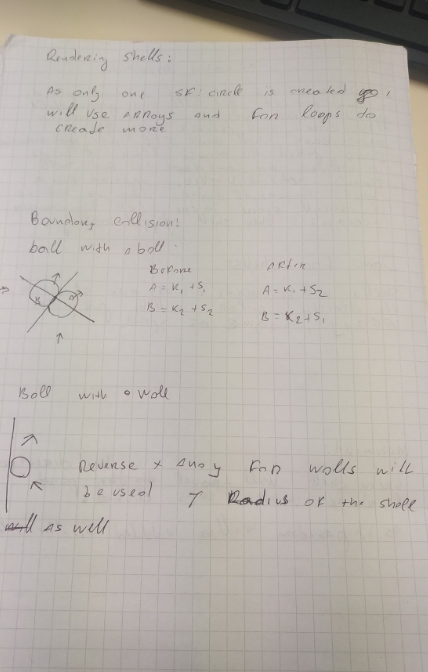 Rendering shells:
As only one SF: circle is created go i
will use arrays and for loops to
create more
Boundary collision:
ball with a ball
Before
After
A = K₁ + S₁
A = K₁ + S₂
B = K₂ + S₂
B = K₂ + S₁
Ball with a wall
Reverse x and y for walls will
be used Radius of the shell
as well